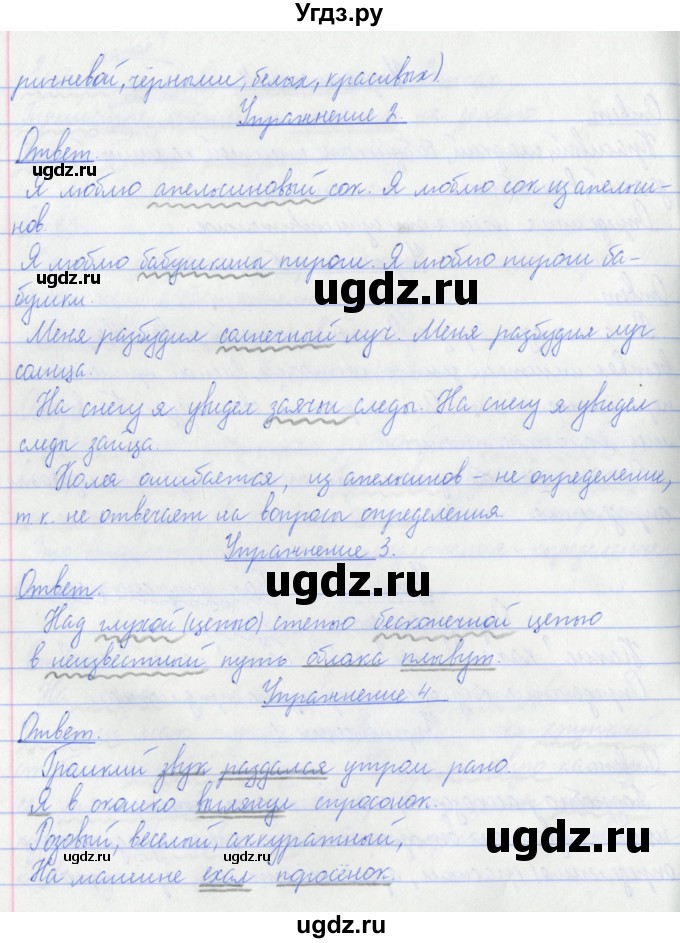 Угдз.ру
ричневой, чёрными, белых, красивых)
Упражнение 2.
Ответ.
Я люблю апельсиновый сок. Я люблю сок из апельси-
нов.
Я люблю бабушкины пироги. Я люблю пироги ба-
бушки.
Меня разбудил солнечный луч. Меня разбудил луч
солнца.
На снегу я увидел заячьи следы. На снегу я увидел
следы зайца.
Колея ошибается, из апельсинов – не определение,
т.к. не отвечает на вопросы определения.
Упражнение 3.
Ответ.
Над глухой (цепью) степью бесконечной цепью
в неизвестный путь облака плывут.
Упражнение 4
Ответ.
Громкий звук раздался утром рано.
Я в окошко выглянул спросонок.
Розовый, веселый, аккуратный,
На машине ехал поросёнок.
ugdz.ru
ugdz.ru
ugdz.ru
ugdz.ru
ugdz.ru
ugdz.ru
ugdz.ru
ugdz.ru
ugdz.ru
ugdz.ru